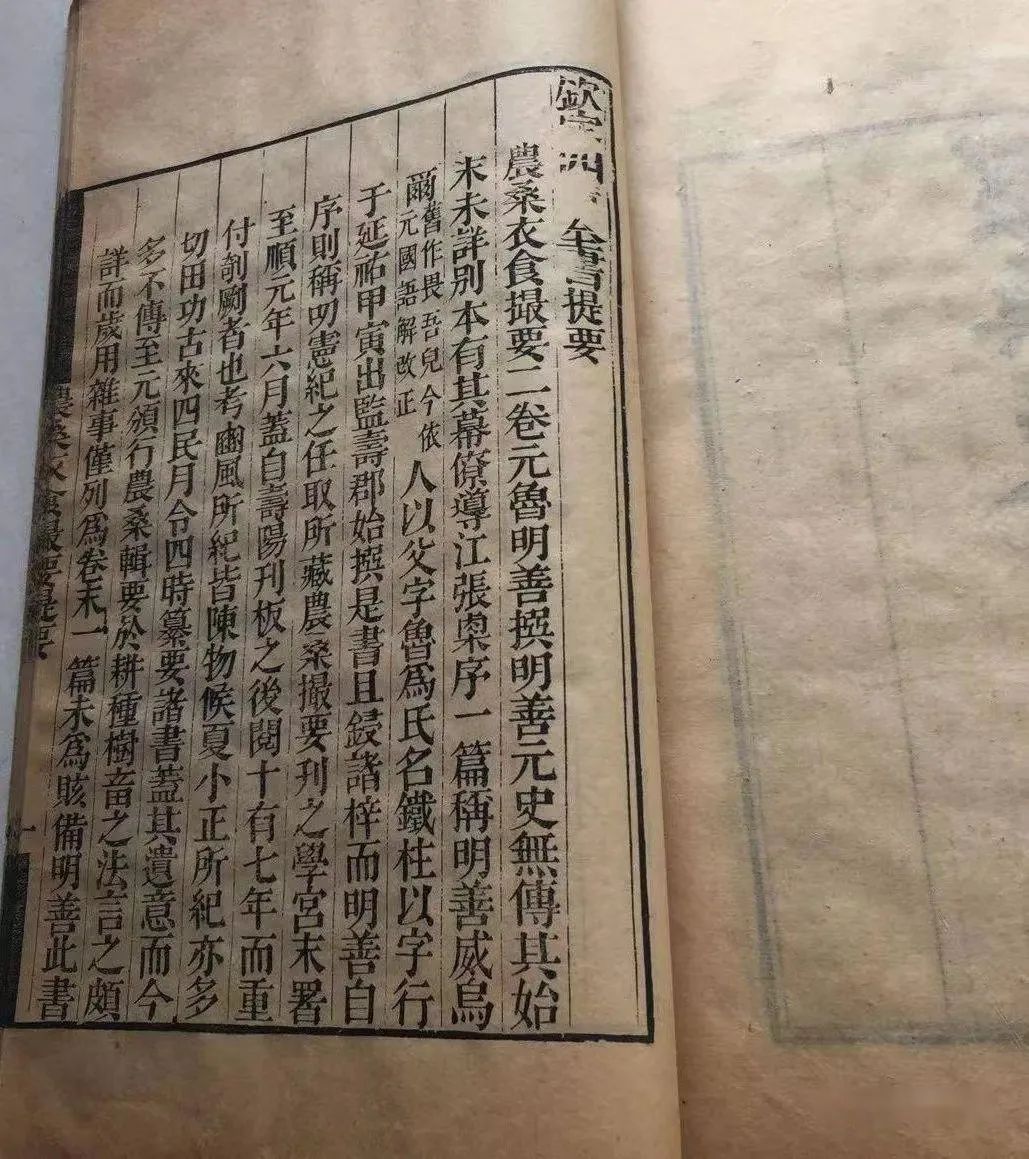 欽定四庫全書提要
農桑衣食撮要二卷元魯明善撰明善元史無傳其始
末未詳別本有其幕僚導江張㮚序一篇稱明善威烏
爾舊作畏吾兒今依元國語解改正人以父字魯為氏名鐵柱以字行
于延祐甲寅出監壽郡始撰是書且鋟諸梓而明善自
序則稱叨憲紀之任取所藏農桑撮要刊之學宮末署
至順元年六月蓋自壽陽刊板之後閱十有七年而重
付剞劂者也考豳風所紀皆陳物候夏小正所紀亦多
切田功古來四民月令四時纂要諸書蓋其遺意而今
多不傳至元頒行農桑輯要於耕種樹畜之法言之頗
詳而歲用雜事僅列為卷末一篇未為賅備明善此書
農桑衣食撮要提要
一